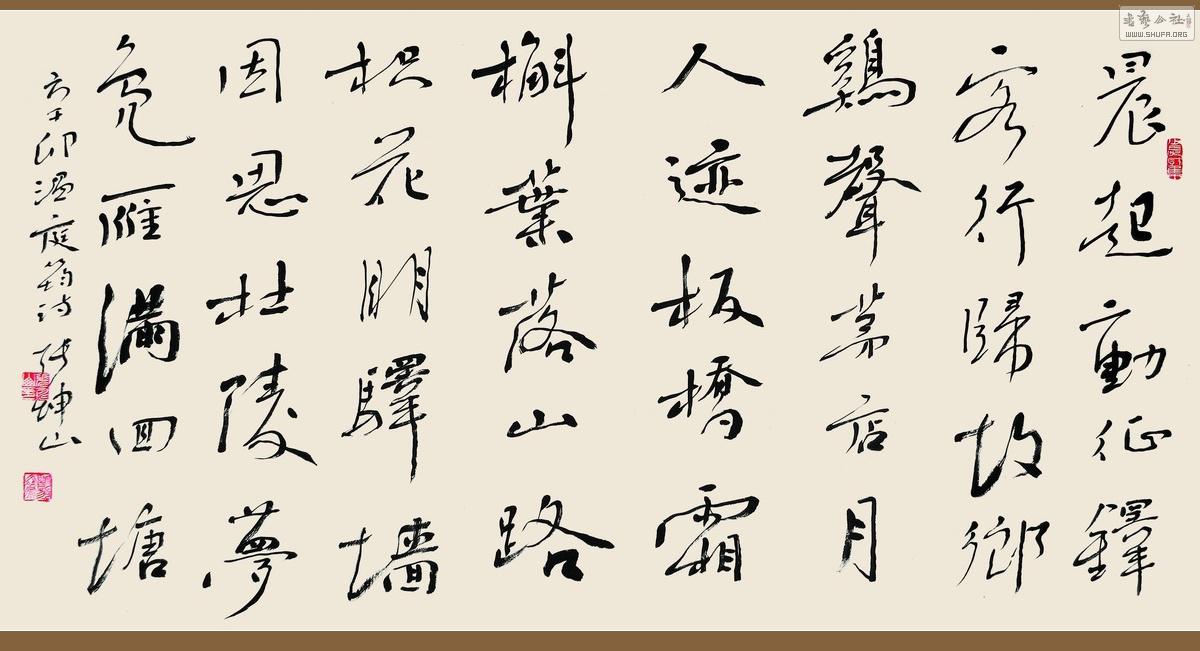 晨起動征鐸
客行歸故鄉
鷄聲茅店月
人迹板橋霜
槲葉落山路
枳花明驛墻
因思杜陵夢
鳧雁滿回塘
辛卯溫庭筠詩 張坤山
書藝公社
WWW.SHUFA.ORG